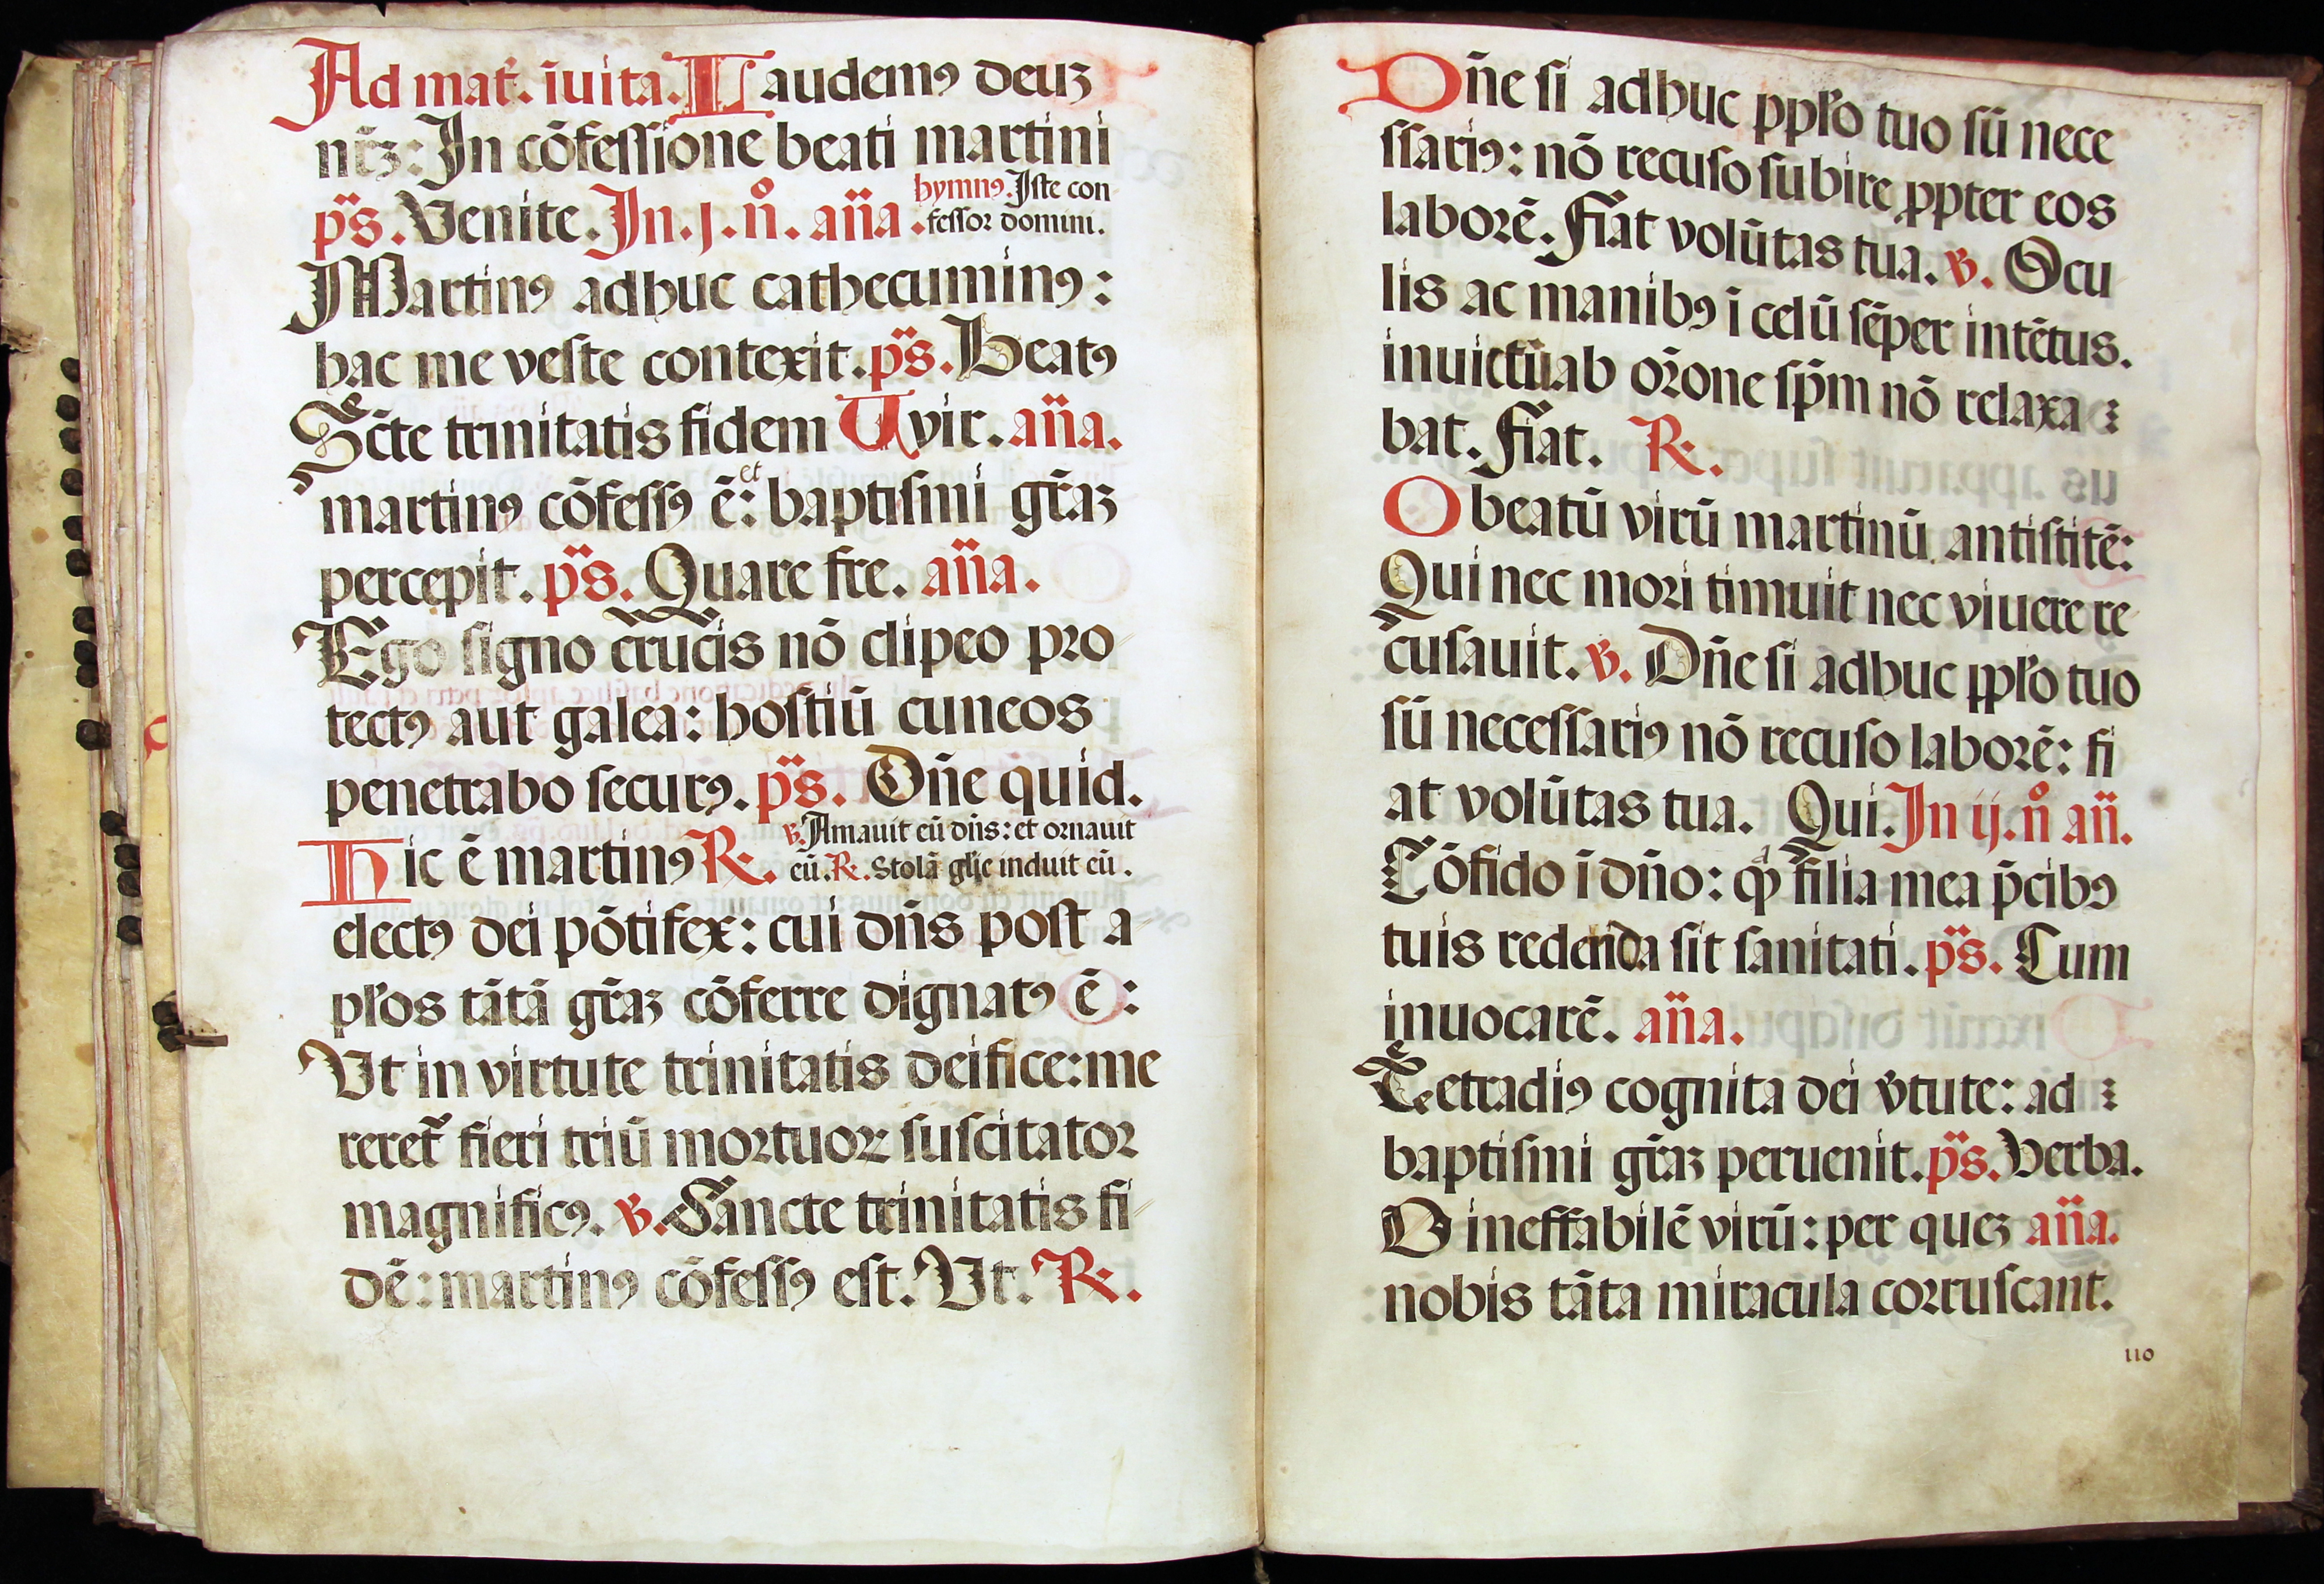 Ad mat̃. ĩuita. Laudemꝰ deuʒ
nr̃ʒ: In cõfessione beati martini
p̈s. Venite. In .j. n̊. an̄a. hymnꝰ. Iste con
fessor domini.
Martinꝰ adhuc cathecuminꝰ:
hac me veste contexit. p̈s. Beatꝰ
Sc̃te trinitatis fidem vir. an̄a.
martinꝰ cõfessꝰ ẽ: et baptismi gr̃aʒ
percepit. p̈s. Quare fre. an̄a.
Ego signo crucis nõ clipeo pro
tectꝰ aut galea: hostiũ cuneos
penetrabo securꝰ. p̈s. Dñe quid.
Hic ẽ martinꝰ ℟. ℣. Amauit eũ dñs: et ornauit
eũ. ℟. Stolã gl̃ie induit eũ.
electꝰ dei põtifex: cui dñs post a
pl̃os tãtã gr̃aʒ cõferre dignatꝰ ẽ:
Vt in virtute trinitatis deifice: me
reret̃ fieri triũ mortuoꝝ suscitator
magnificꝰ. ℣. Sancte trinitatis fi
dẽ: martinꝰ cõfessꝰ est. Vt. ℟.
Dñe si adhuc ppl̃o tuo sũ nece
ssariꝰ: nõ recuso subire ꝓpter eos
laborẽ. Fiat volũtas tua. ℣. Ocu
lis ac manibꝰ ĩ celũ sẽper intẽtus.
inuictũ ab or̃one sp̃m nõ relaxa
bat. Fiat. ℟.
O beatũ virũ martinũ antistitẽ:
Qui nec mori timuit nec viuere re
cusauit. ℣. Dñe si adhuc ppl̃o tuo
sũ necessariꝰ nõ recuso laborẽ: fi
at volũtas tua. Qui. In ij. n̊ an̄.
Cõfido ĩ dño: ꝙ filia mea p̃cibꝰ
tuis reddenda sit sanitati. p̈s. Cum
inuocarẽ. an̄a.
Tetradiꝰ cognita dei v̓tute: ad
baptismi gr̃aʒ peruenit. p̈s. Verba.
O ineffabilẽ virũ: per queʒ an̄a.
nobis tãta miracula corruscant.
110